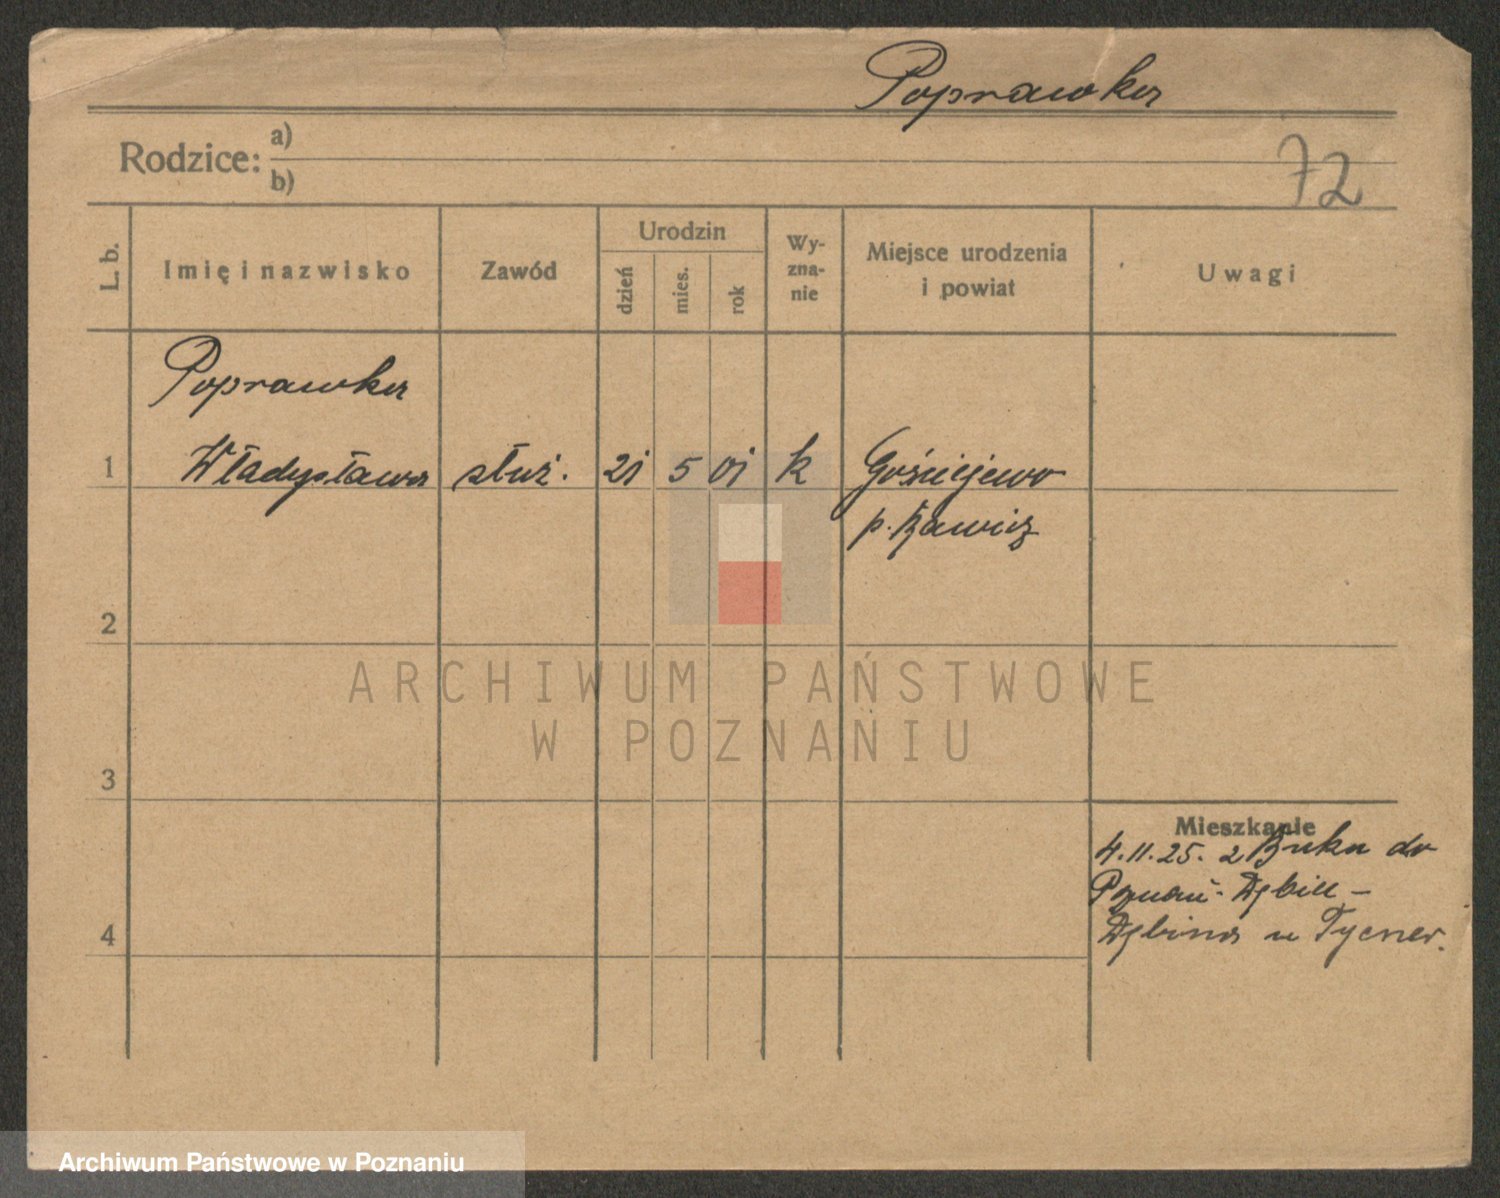 Poprawka
Rodzice: a)
b)
72
L. b.
Imię i nazwisko
Zawód
Urodzin
dzień
mies.
rok
Wy-
zna-
nie
Miejsce urodzenia
i powiat
Uwagi
Poprawka
1 Władysława służ. 21 5 01 k Gościejewo
p. Rawicz
2
ARCHIWUM PAŃSTWOWE
W POZNANIU
3
Mieszkanie
4.11.25. z Buku do
Poznań-Dębiec -
4
Dębina u Tycner.
Archiwum Państwowe w Poznaniu